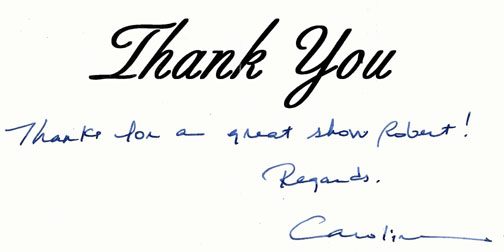 Thank You
Thanks for a great show Robert!
Regards.
Carolin